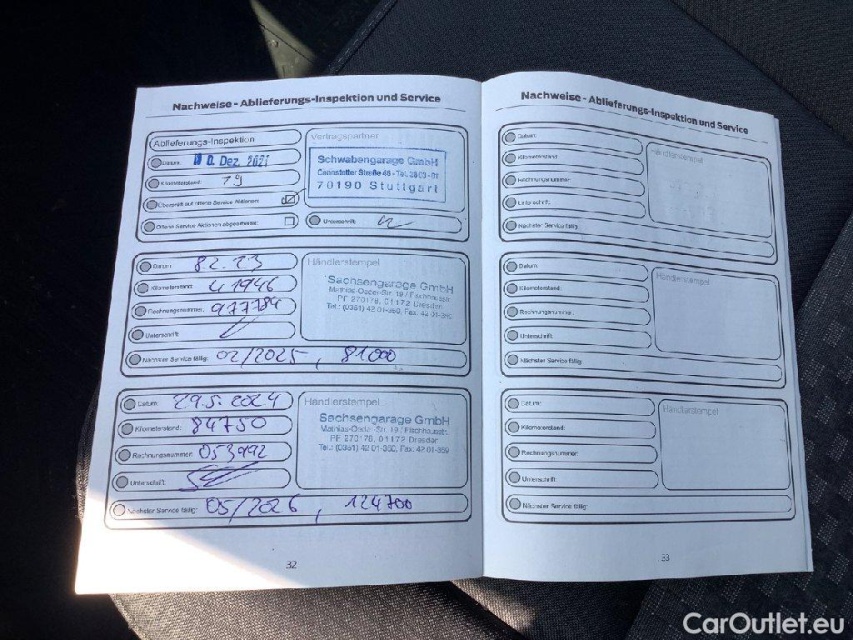 Nachweise - Ablieferungs-Inspektion und Service
Ablieferungs-Inspektion
Vertragspartner
Datum: 10. Dez. 2021
Kilometerstand: 19
Überprüft auf offene Service Aktionen:
Offene Service Aktionen abgearbeitet:
Unterschrift:
Schwabengarage GmbH
Cannstatter Straße 46 - Tel. 28 03 - 01
70190 Stuttgart
Datum: 8.2.23
Kilometerstand: 41946
Rechnungsnummer: 977784
Unterschrift:
Nächster Service fällig: 02/2025, 81000
Händlerstempel
Sachsengarage GmbH
19 / Fischhausstr.
PF 270178, 01172 Dresden
Tel.: (0351) 42 01-360, Fax: 42 01-359
Datum: 29.5.2024
Kilometerstand: 84750
Rechnungsnummer: 053992
Unterschrift:
Nächster Service fällig: 05/2026, 124700
Händlerstempel
Sachsengarage GmbH
19 / Fischhausstr.
PF 270178, 01172 Dresden
Tel.: (0351) 42 01-360, Fax: 42 01-359
32
Nachweise - Ablieferungs-Inspektion und Service
Datum:
Kilometerstand:
Rechnungsnummer:
Unterschrift:
Nächster Service fällig:
Händlerstempel
Datum:
Kilometerstand:
Rechnungsnummer:
Unterschrift:
Nächster Service fällig:
Händlerstempel
Datum:
Kilometerstand:
Rechnungsnummer:
Unterschrift:
Nächster Service fällig:
Händlerstempel
33
CarOutlet.eu